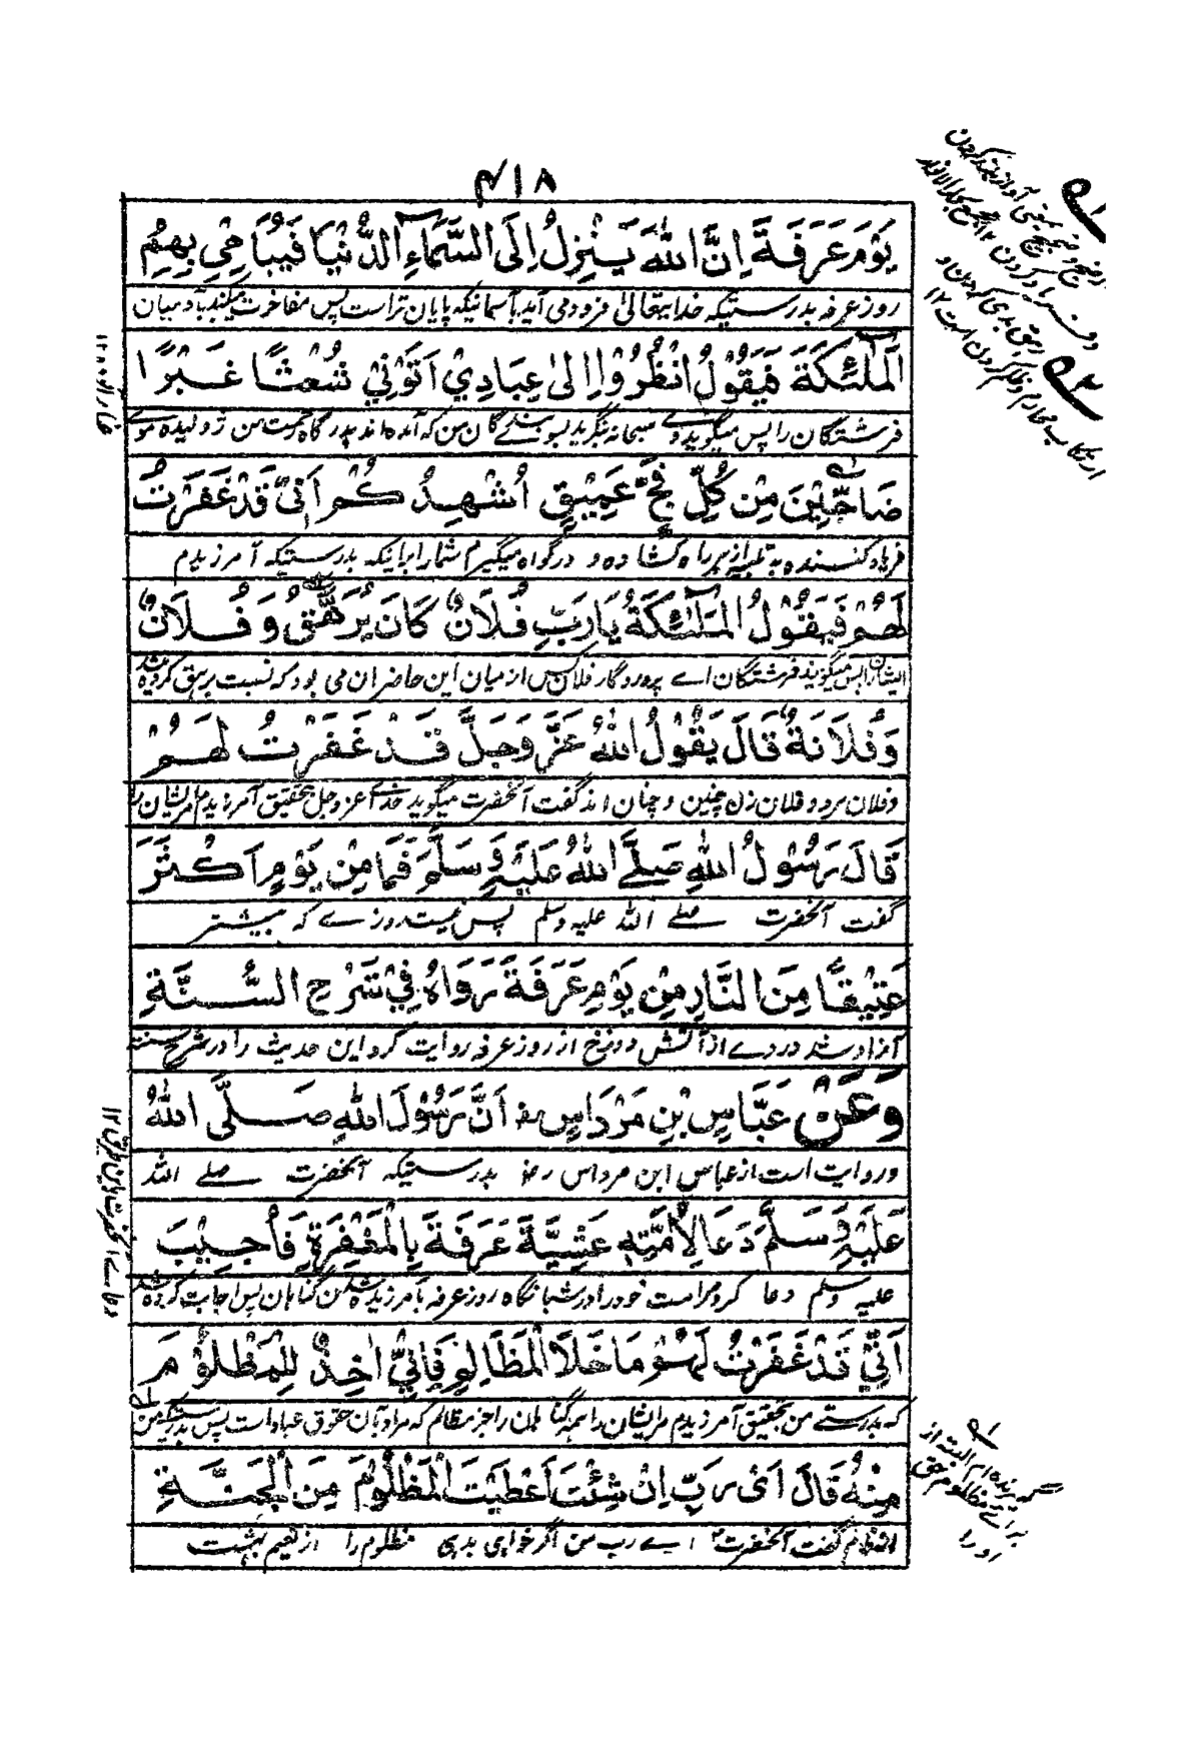 ۴۱۸
يَوْمَ عَرَفَةَ اِنَّ اللهَ يَنْزِلُ اِلَى السَّمَاءِ الدُّنْيَا فَيُبَاهِيْ بِهِمُ
روز عرفه بدرستیکه خدایتعالی فرودمی آید بآسمانیکه پایان تراست پس مفاخرت میکند بآدمیان
الْمَلٰئِكَةَ فَيَقُوْلُ انْظُرُوْا اِلٰى عِبَادِيْ اَتَوْنِيْ شُعْثًا غَبْرًا
فرشتگان را پس میگوید وے سبحانه بنگرید بسوے بندگان من که آمده اند بدرگاه رحمت من ژولیده موے
ضَاجِّيْنَ مِنْ كُلِّ فَجٍّ عَمِيْقٍ اُشْهِدُكُمْ اَنِّيْ قَدْ غَفَرْتُ
فریاد کننده به تلبیه از هر راه کشاده و در گواه میگیرم شمارا براینکه بدرستیکه آمرزیدم
لَهُمْ فَيَقُوْلُ الْمَلٰئِكَةُ يَا رَبِّ فُلَانٌ كَانَ يُرَهَّقُ وَ فُلَانٌ
ایشانرا پس میگویند فرشتگان اے پروردگار فلان کس از میان این حاضران می بود که نسبت برهق کرده میشد
وَفُلَانَةٌ قَالَ يَقُوْلُ اللهُ عَزَّ وَجَلَّ قَدْ غَفَرْتُ لَهُمْ
و فلان مرد و فلان زن چنین و چنان اند گفت آنحضرت میگوید خداے عز و جل بتحقیق آمرزیدم مرایشان را
قَالَ رَسُوْلُ اللهِ صَلَّے اللهُ عَلَيْهِ وَسَلَّمَ فَمَا مِنْ يَوْمٍ اَكْثَرَ
گفت آنحضرت صلے الله علیه وسلم پس نیست روزے که بیشتر
عَتِيْقًا مِنَ النَّارِ مِنْ يَوْمِ عَرَفَةَ رَوَاهُ فِيْ شَرْحِ السُّنَّةِ
آزاد شد در وے از آتش دوزخ از روز عرفه روایت کرد این حدیث را در شرح سنته
وَعَنْ عَبَّاسِ بْنِ مَرْدَاسٍ رض اَنَّ رَسُوْلَ اللهِ صَلَّى اللهُ
و روایت است از عباس ابن مرداس رض بدرستیکه آنحضرت صلے الله
عَلَيْهِ وَسَلَّمَ دَعَا لِاُمَّتِهٖ عَشِيَّةَ عَرَفَةَ بِالْمَغْفِرَةِ فَاُجِيْبَ
علیه وسلم دعا کرد مرامت خود را در شبانگاه روز عرفه بآمرزیده شدن گناهان پس اجابت کرده شد
اَنِّيْ قَدْ غَفَرْتُ لَهُمْ مَا خَلَا الْمَظَالِمَ فَاِنِّيْ اٰخِذٌ لِلْمَظْلُوْمِ
که بدرستے من بتحقیق آمرزیدم مرایشان را همه گناهان را جز مظالم که مراد بآن حقوق عباد است پس بدرستیکه من
مِنْهُ قَالَ اَىْ رَبِّ اِنْ شِئْتَ اَعْطَيْتَ الْمَظْلُوْمَ مِنَ الْجَنَّةِ
از ظالم گفت آنحضرت اے رب من اگر خواهی بدهی مظلوم را از نعیم بهشت